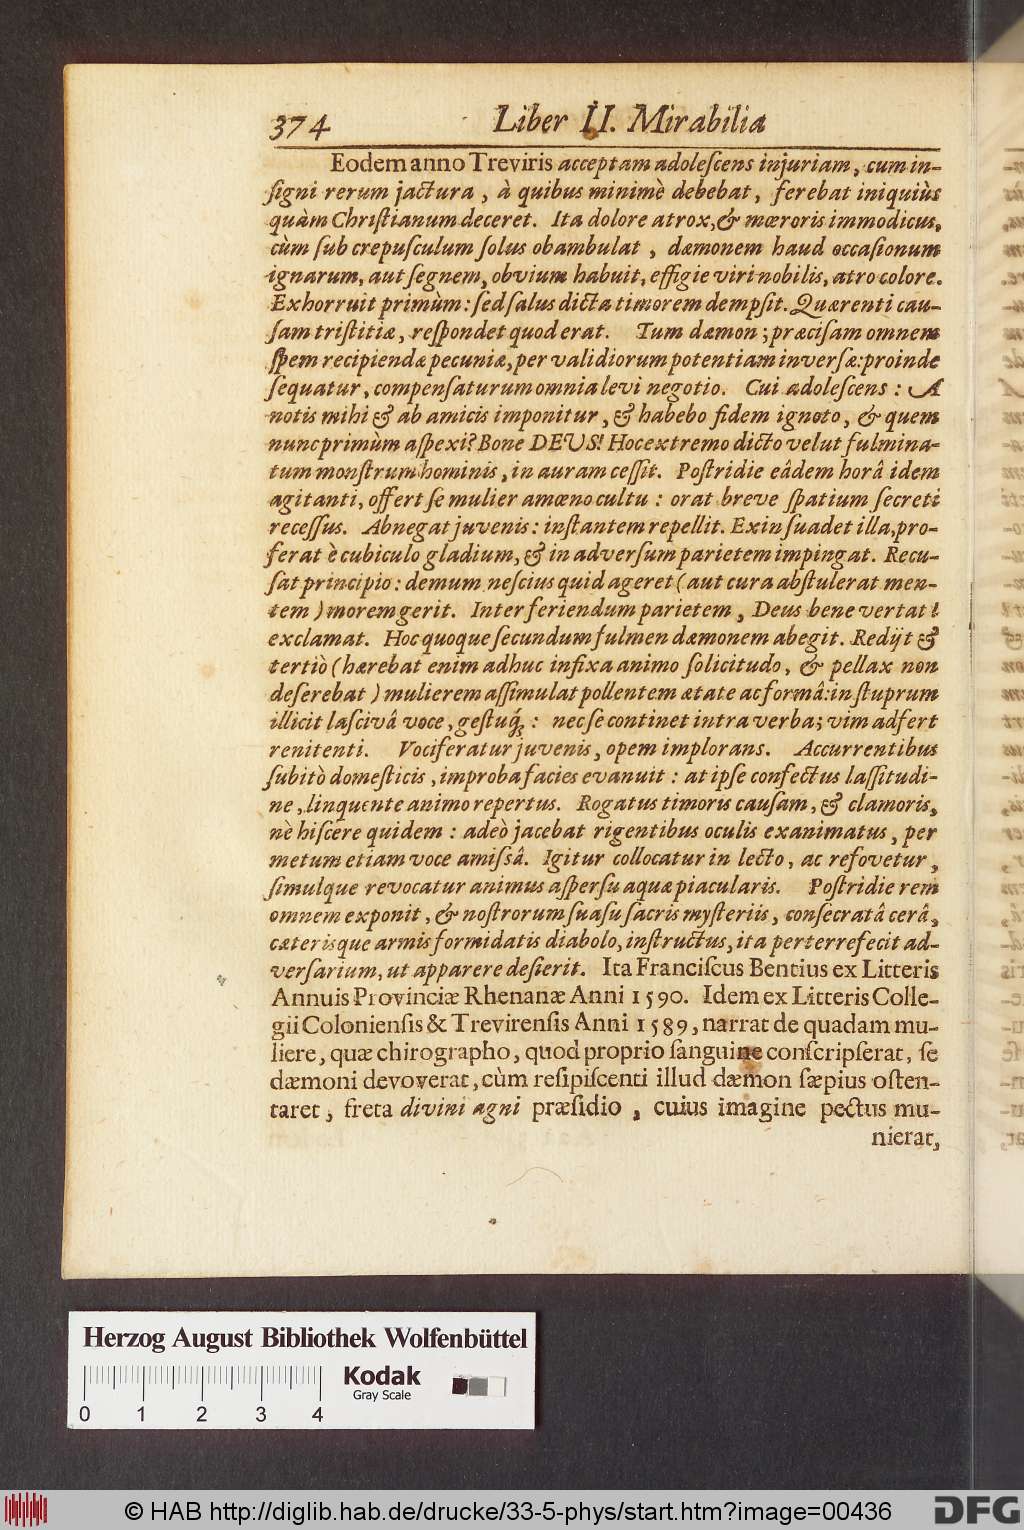 374 Liber II. Mirabilia
Eodem anno Treviris acceptam adoleſcens injuriam, cum in-
ſigni rerum jactura, à quibus minimè debebat, ferebat iniquiùs
quàm Chriſtianum deceret. Ita dolore atrox, & mœroris immodicus,
cùm ſub crepuſculum ſolus obambulat, dæmonem haud occaſionum
ignarum, aut ſegnem, obvium habuit, effigie viri nobilis, atro colore.
Exhorruit primùm: ſed ſalus dicta timorem dempſit. Quærenti cau-
ſam triſtitiæ, reſpondet quod erat. Tum dæmon; præciſam omnem
ſpem recipiendæ pecuniæ, per validiorum potentiam inverſæ: proinde
ſequatur, compenſaturum omnia levi negotio. Cui adoleſcens: A
notis mihi & ab amicis imponitur, & habebo fidem ignoto, & quem
nunc primùm aſpexi? Bone DEUS! Hoc extremo dicto velut fulmina-
tum monſtrum hominis, in auram ceſſit. Poſtridie eâdem horâ idem
agitanti, offert ſe mulier amœno cultu: orat breve ſpatium ſecreti
receſſus. Abnegat juvenis: inſtantem repellit. Exin ſuadet illa, pro-
ferat è cubiculo gladium, & in adverſum parietem impingat. Recu-
ſat principio: demum neſcius quid ageret (aut cura abſtulerat men-
tem) morem gerit. Inter feriendum parietem, Deus bene vertat!
exclamat. Hoc quoque ſecundum fulmen dæmonem abegit. Redijt &
tertiò (hærebat enim adhuc infixa animo ſolicitudo, & pellax non
deſerebat) mulierem aſſimulat pollentem ætate ac formâ: in ſtuprum
illicit laſcivâ voce, geſtuq́;: nec ſe continet intra verba; vim adfert
renitenti. Vociferatur juvenis, opem implorans. Accurrentibus
ſubitò domeſticis, improba facies evanuit: at ipſe confectus laſſitudi-
ne, linquente animo repertus. Rogatus timoris cauſam, & clamoris,
nè hiſcere quidem: adeò jacebat rigentibus oculis exanimatus, per
metum etiam voce amiſſâ. Igitur collocatur in lecto, ac refovetur,
ſimulque revocatur animus aſperſu aquæ piacularis. Poſtridie rem
omnem exponit, & noſtrorum ſuaſu ſacris myſteriis, conſecratâ cerâ,
cæterisque armis formidatis diabolo, inſtructus, ita perterrefecit ad-
verſarium, ut apparere deſierit. Ita Franciſcus Bentius ex Litteris
Annuis Provinciæ Rhenanæ Anni 1590. Idem ex Litteris Colle-
gii Colonienſis & Trevirenſis Anni 1589, narrat de quadam mu-
liere, quæ chirographo, quod proprio ſanguine conſcripſerat, ſe
dæmoni devoverat, cùm reſipiſcenti illud dæmon ſæpius oſten-
taret, freta divini agni præſidio, cuius imagine pectus mu-
nierat,
Herzog August Bibliothek Wolfenbüttel
Kodak
Gray Scale
0 1 2 3 4
© HAB http://diglib.hab.de/drucke/33-5-phys/start.htm?image=00436
DFG